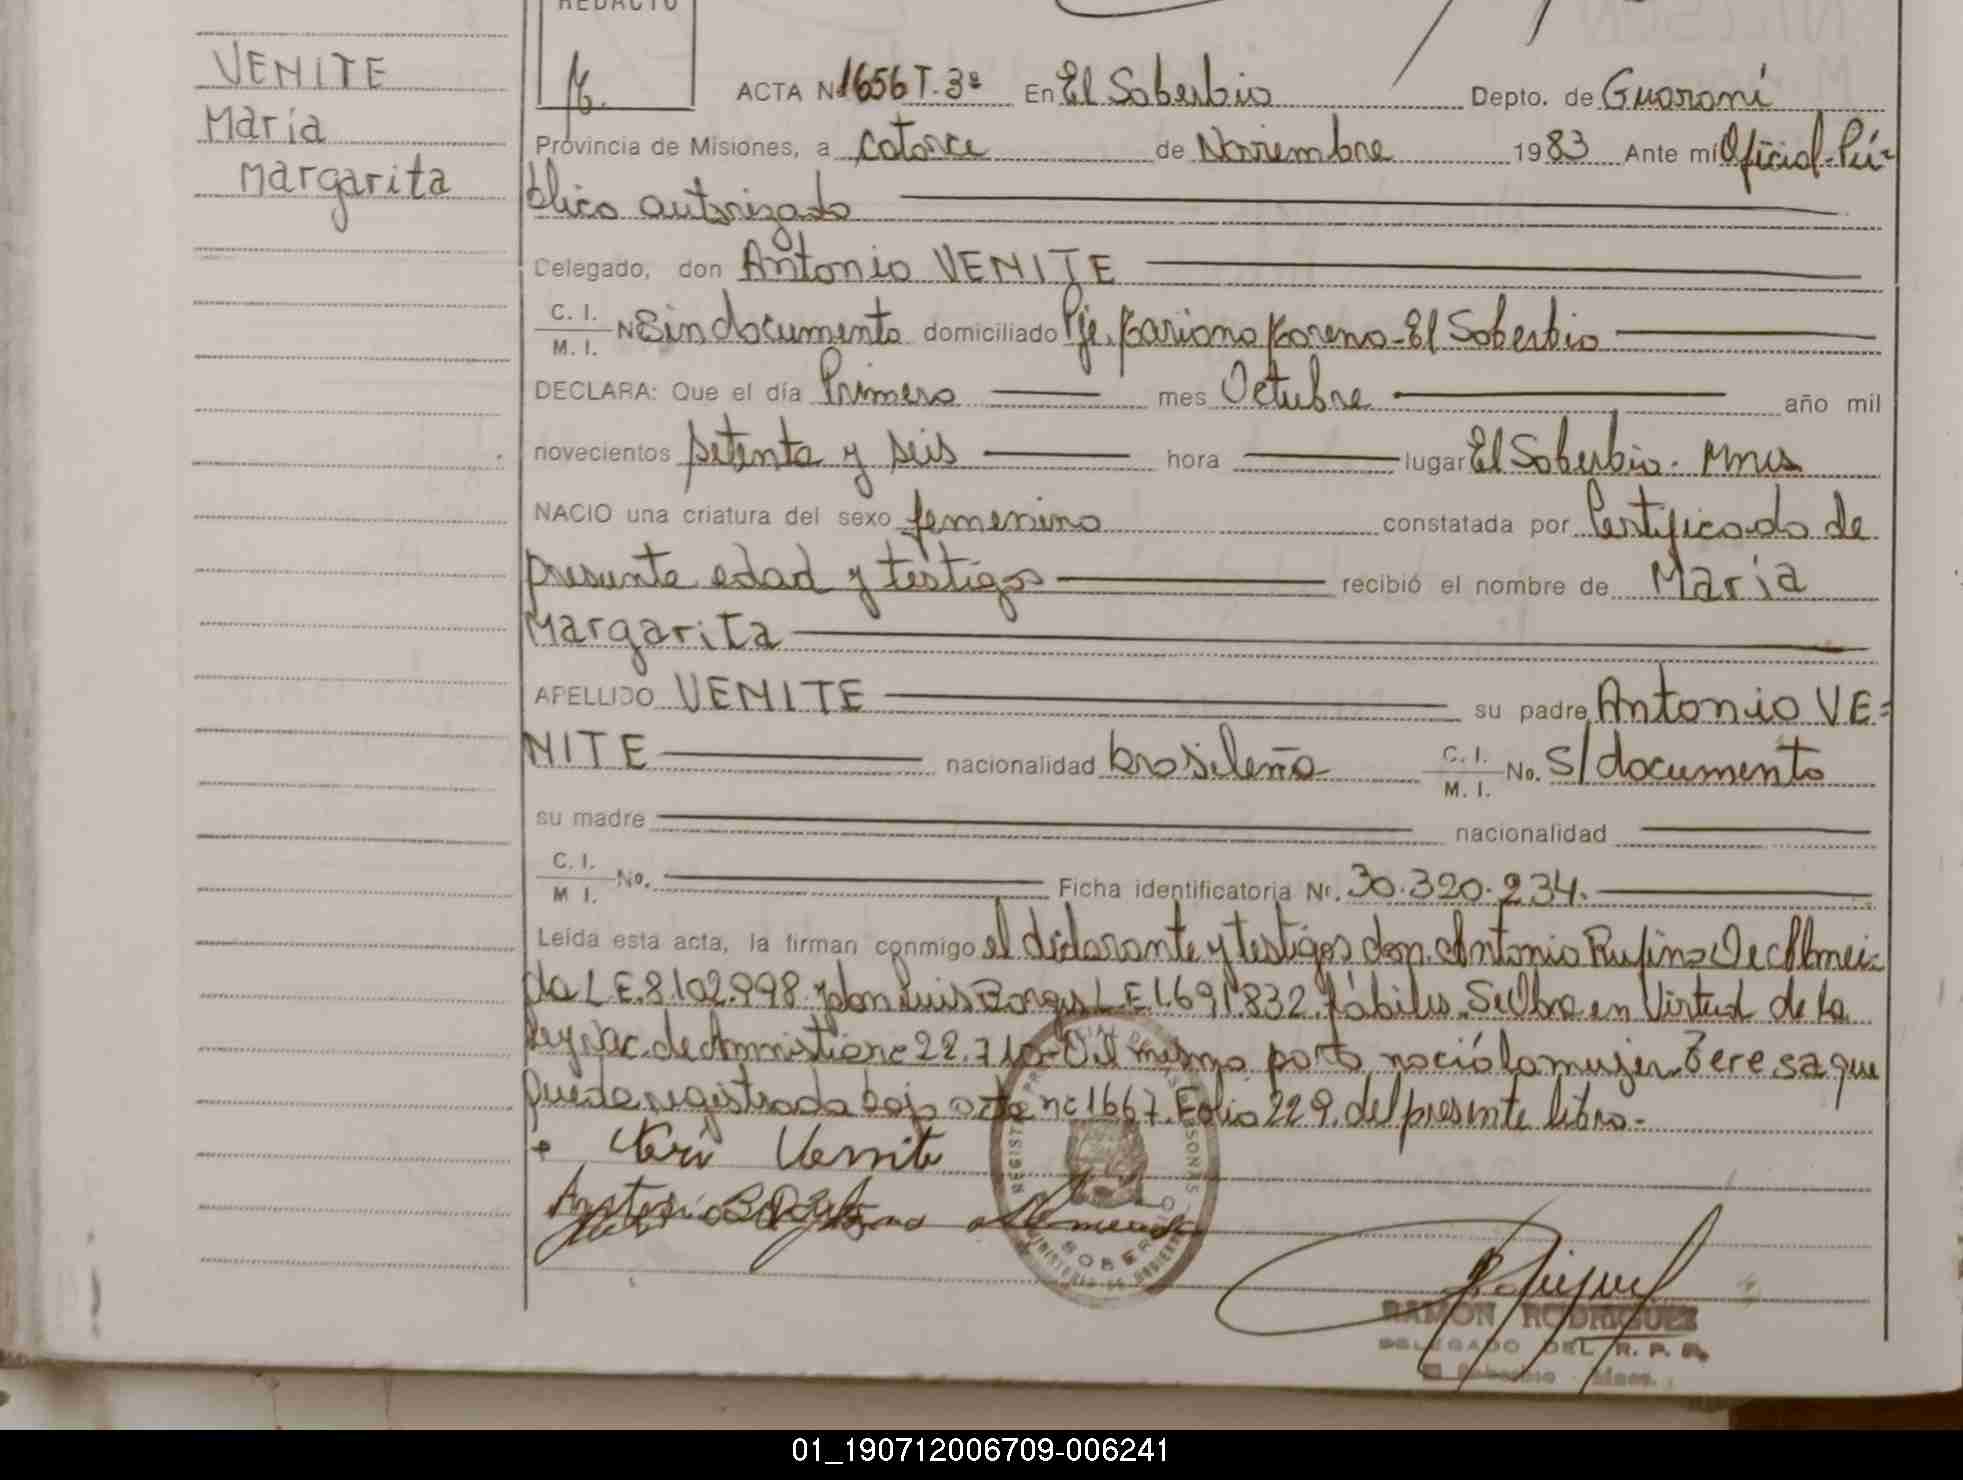 REDACTO
VENITE
María
Margarita
ACTA Nº 1656 T. 3º En El Soberbio Depto. de Guaraní
Provincia de Misiones, a catorce de Noviembre 1983 Ante mí Oficial Pú-
blico autorizado
Delegado, don Antonio VENITE
C. I.
M. I. Nº Sin documento domiciliado Pje. Mariano Moreno - El Soberbio
DECLARA: Que el día Primero mes Octubre año mil
novecientos setenta y seis hora lugar El Soberbio - Mnes
NACIO una criatura del sexo femenino constatada por Certificado de
presunta edad y testigos recibió el nombre de María
Margarita
APELLIDO VENITE su padre Antonio VE=
NITE nacionalidad brasileña C. I.
M. I. No. S/documento
su madre nacionalidad
C. I.
M I. No. Ficha identificatoria Nº. 30.320.234.
Leída esta acta, la firman conmigo el declarante y testigos don Antonio Rufino De Almei-
da L.E. 8.102.998 y don Luis Borges L.E 1.691.832, hábiles. Se Labra en Virtud de la
Ley Nac. de Amnistia nº 22.710 - Del mismo parto nació la mujer Teresa que
queda registrada bajo acta nº 1667. Folio 229, del presente libro.-
Venite
REGISTRO PROVINCIAL DE LAS PERSONAS
MINISTERIO DE GOBIERNO
SOBERBIO
RAMÓN RODRIGUEZ
DELEGADO DEL R. P. P.
El Soberbio - Mnes.
01_190712006709-006241